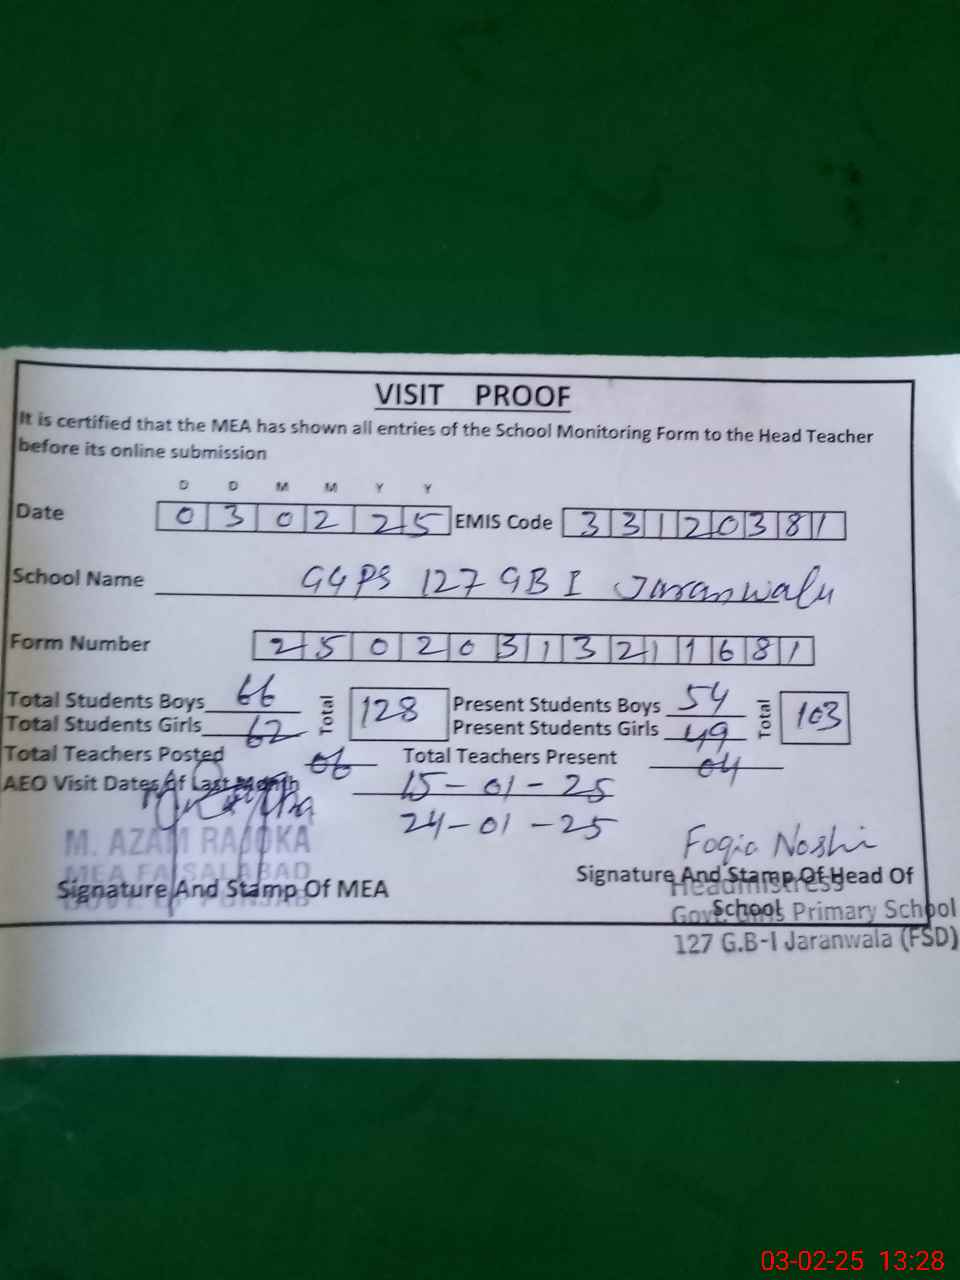 VISIT PROOF
It is certified that the MEA has shown all entries of the School Monitoring Form to the Head Teacher
before its online submission
D D M M Y Y
Date 0 3 0 2 2 5 EMIS Code 3 3 1 2 0 3 8 1
School Name GGPS 127 GB I Jaranwala
Form Number 2 5 0 2 0 3 1 3 2 1 1 6 8 1
Total Students Boys 66 Total 128 Present Students Boys 54 Total 103
Total Students Girls 62 Present Students Girls 49
Total Teachers Posted 06 Total Teachers Present 04
AEO Visit Dates of Last Month 15-01-25
24-01-25
M. AZAM RAJOKA
MEA FAISALABAD
GOVT. OF PUNJAB
Signature And Stamp Of MEA
Foqia Noshi
Signature And Stamp Of Head Of
School
Headmistress
Govt. Girls Primary School
127 G.B-I Jaranwala (FSD)
03-02-25 13:28